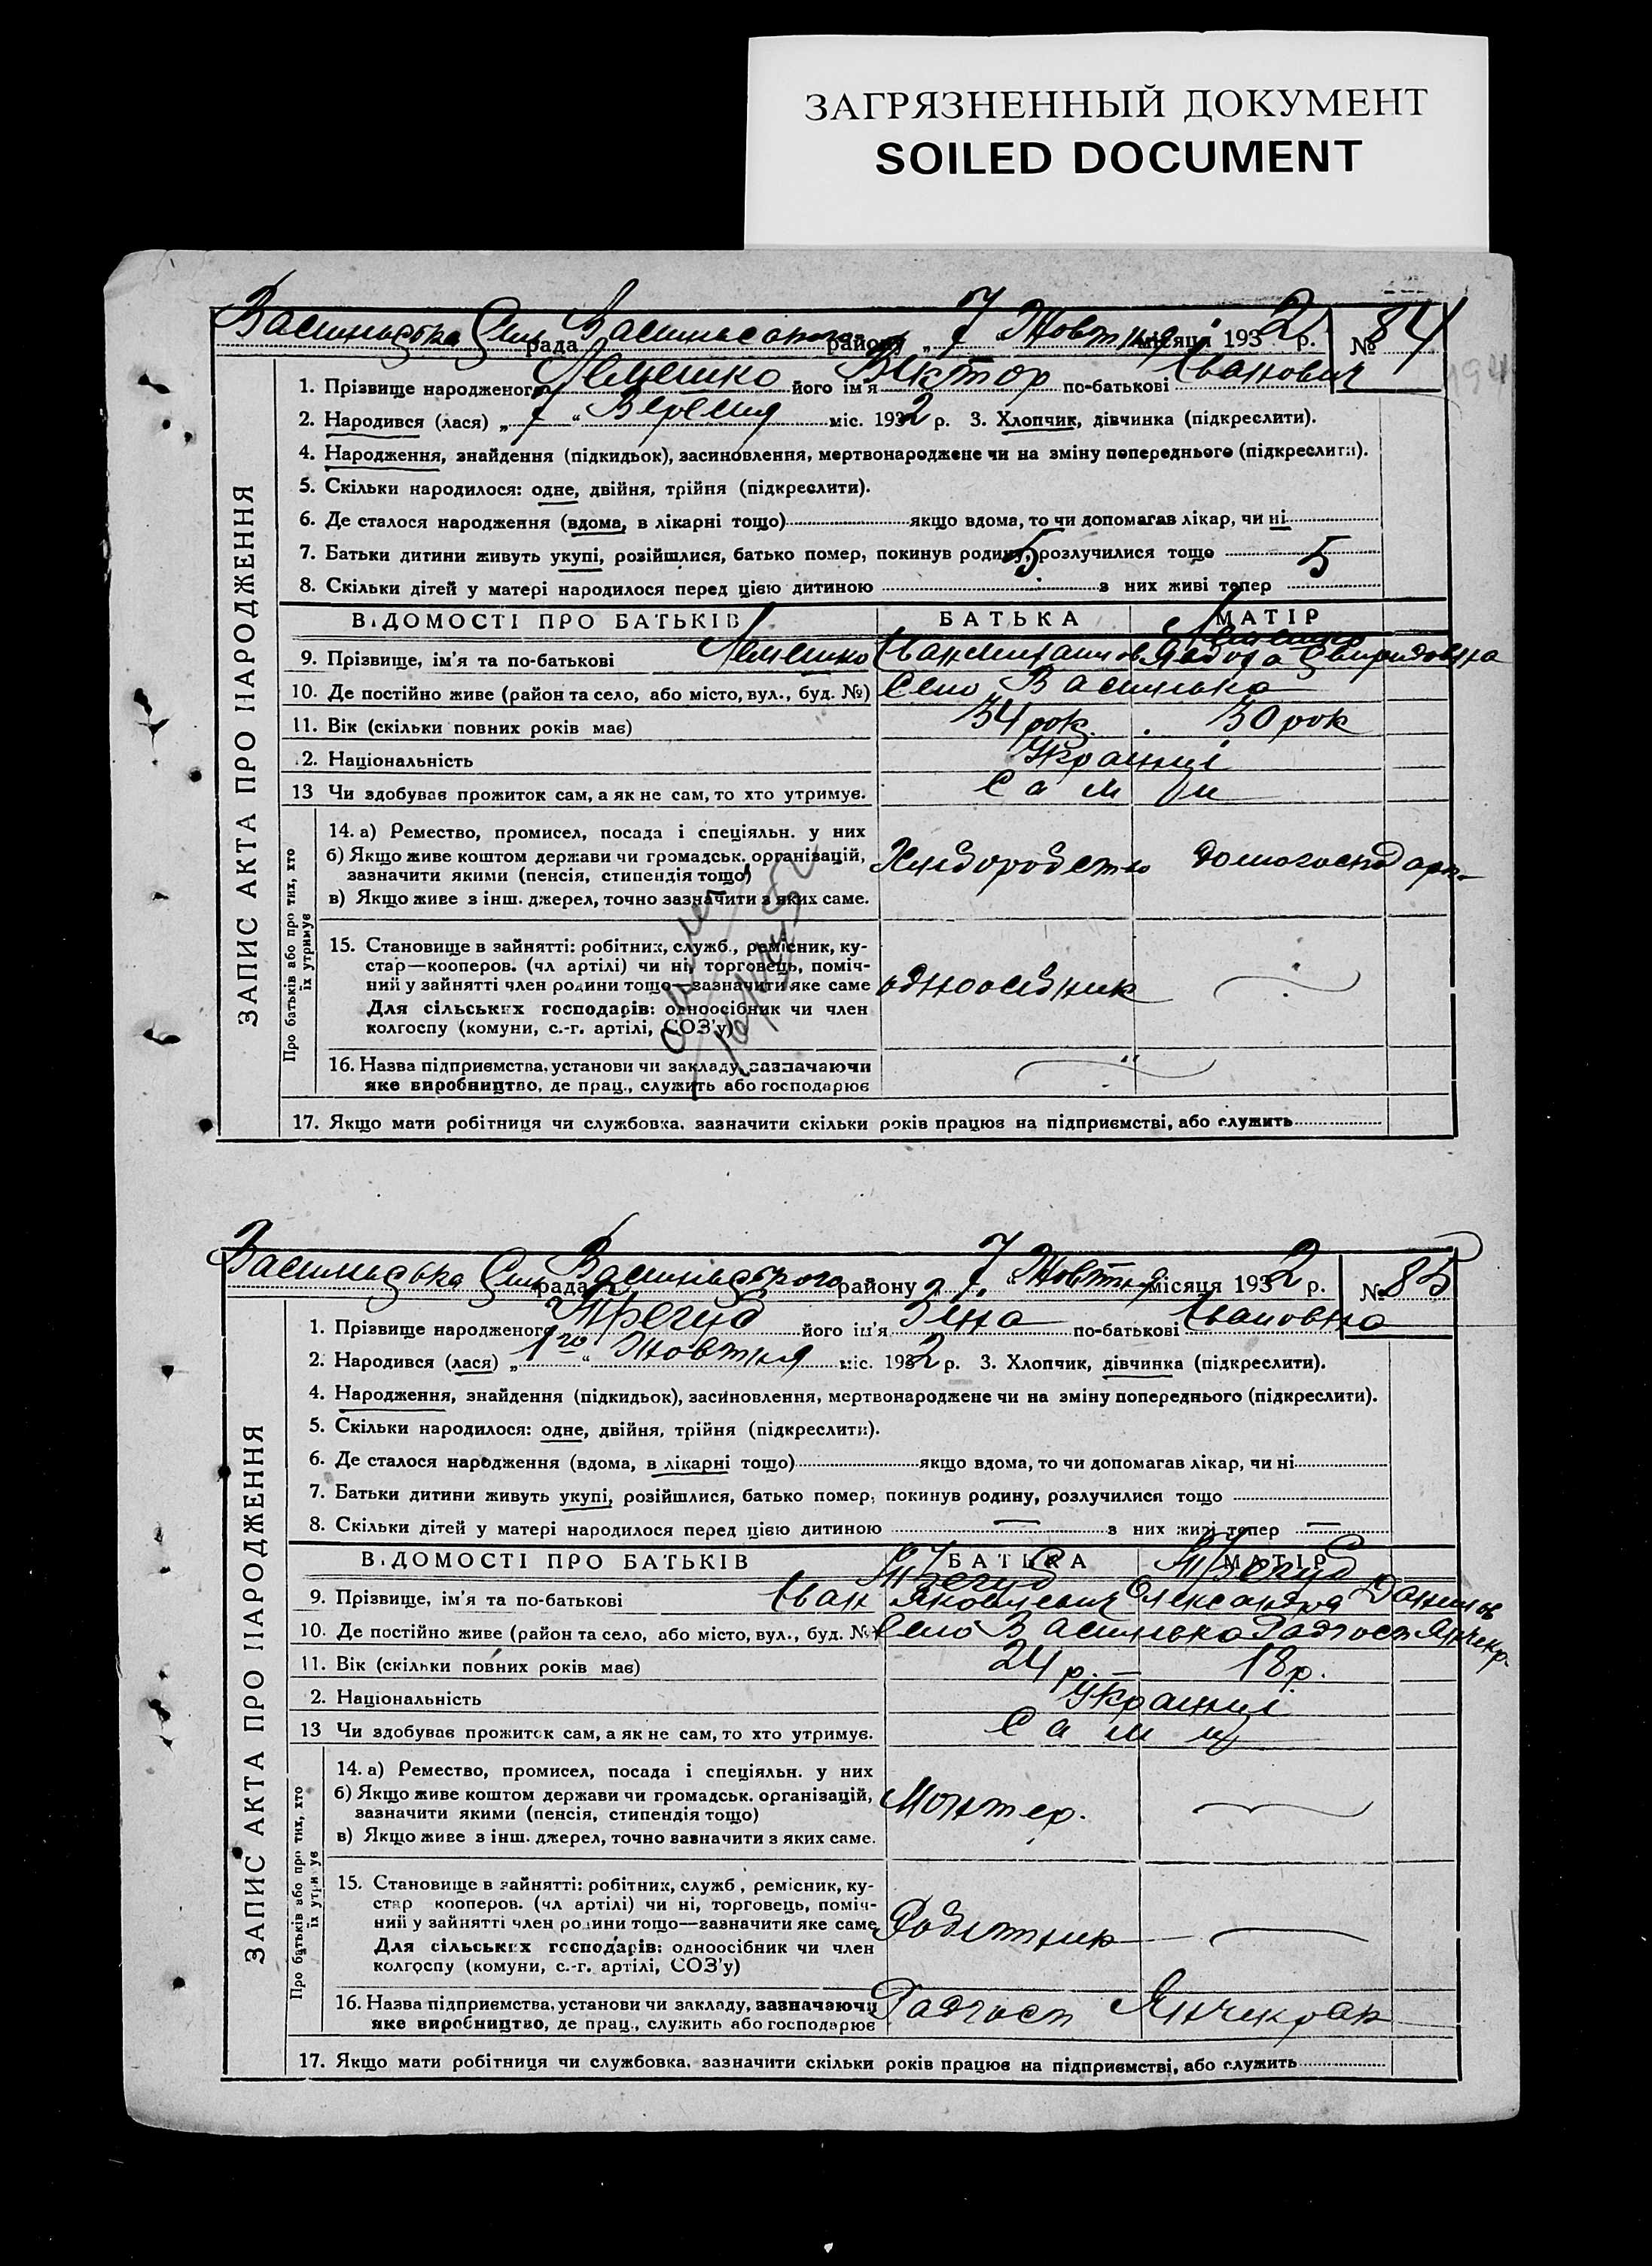 ЗАГРЯЗНЕННЫЙ ДОКУМЕНТ
SOILED DOCUMENT
Васильевська Сіль рада Васильевского району „ 7 " Жовтня місяця 1932 р. № 84
1. Прізвище народженого Лемешко його ім'я Віктор по-батькові Іванович
2. Народився (лася) „ 7 " Вересня міс. 1932 р. 3. Хлопчик, дівчинка (підкреслити).
4. Народження, знайдення (підкидьок), засиновлення, мертвонароджене чи на зміну попереднього (підкреслити).
5. Скільки народилося: одне, двійня, трійня (підкреслити).
6. Де сталося народження (вдома, в лікарні тощо) якщо вдома, то чи допомагав лікар, чи ні
7. Батьки дитини живуть укупі, розійшлися, батько помер, покинув родину, розлучилися тощо
8. Скільки дітей у матері народилося перед цією дитиною 5 з них живі тепер 5
ЗАПИС АКТА ПРО НАРОДЖЕННЯ
ВІДОМОСТІ ПРО БАТЬКІВ БАТЬКА МАТІР
9. Прізвище, ім'я та по-батькові Лемешко Іван Лемешко Свиридовна
10. Де постійно живе (район та село, або місто, вул., буд. №) Село Василька
11. Вік (скільки повних років має) 34 рок. 30 рок
2. Національність Українці
13 Чи здобував прожиток сам, а як не сам, то хто утримує. Сами
Про батьків або про тих, хто їх утримує
14. а) Ремество, промисел, посада і спеціяльн. у них
б) Якщо живе коштом держави чи громадськ. організацій,
зазначити якими (пенсія, стипендія тощо) Хлиборобство домогосподарк
в) Якщо живе з інш. джерел, точно зазначити з яких саме.
15. Становище в зайнятті: робітник, служб., ремісник, ку-
стар—кооперов. (чл артілі) чи ні, торговець, поміч-
ний у зайнятті член родини тощо—зазначити яке саме одноосібник
Для сільських господарів: одноосібник чи член
колгоспу (комуни, с.-г. артілі, СОЗ'у)
16. Назва підприємства, установи чи закладу, зазначаючи
яке виробництво, де прац., служить або господарює
17. Якщо мати робітниця чи службовка, зазначити скільки років працює на підприємстві, або служить
Васильевська Сіль рада Васильевского району „ 7 " Жовтня місяця 1932 р. № 85
1. Прізвище народженого Трегуб його ім'я Зіна по-батькові Івановна
2. Народився (лася) „ 1го " Жовтня міс. 1932 р. 3. Хлопчик, дівчинка (підкреслити).
4. Народження, знайдення (підкидьок), засиновлення, мертвонароджене чи на зміну попереднього (підкреслити).
5. Скільки народилося: одне, двійня, трійня (підкреслити).
6. Де сталося народження (вдома, в лікарні тощо) якщо вдома, то чи допомагав лікар, чи ні
7. Батьки дитини живуть укупі, розійшлися, батько помер, покинув родину, розлучилися тощо
8. Скільки дітей у матері народилося перед цією дитиною — з них живі тепер —
ЗАПИС АКТА ПРО НАРОДЖЕННЯ
ВІДОМОСТІ ПРО БАТЬКІВ БАТЬКА МАТІР
Трегуб Трегуб
9. Прізвище, ім'я та по-батькові Іван Яковлевич Олександра Данилов
10. Де постійно живе (район та село, або місто, вул., буд. № Село Василька Радгосп Янчекр.
11. Вік (скільки повних років має) 24 р. — 18 р.
2. Національність Українці
13 Чи здобував прожиток сам, а як не сам, то хто утримує. Сами
Про батьків або про тих, хто їх утримує
14. а) Ремество, промисел, посада і спеціяльн. у них
б) Якщо живе коштом держави чи громадськ. організацій,
зазначити якими (пенсія, стипендія тощо) Монтер.
в) Якщо живе з інш. джерел, точно зазначити з яких саме.
15. Становище в зайнятті: робітник, служб., ремісник, ку-
стар кооперов. (чл артілі) чи ні, торговець, поміч-
ний у зайнятті член родини тощо—зазначити яке саме Робітник
Для сільських господарів: одноосібник чи член
колгоспу (комуни, с.-г. артілі, СОЗ'у)
16. Назва підприємства, установи чи закладу, зазначаючи Радгосп Янчекрак
яке виробництво, де прац., служить або господарює
17. Якщо мати робітниця чи службовка, зазначити скільки років працює на підприємстві, або служить